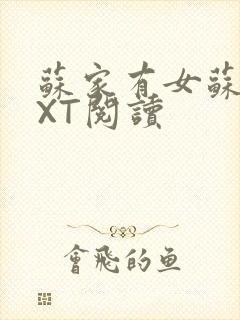 蘇家有女蘇
XT閱讀
會飛的鱼